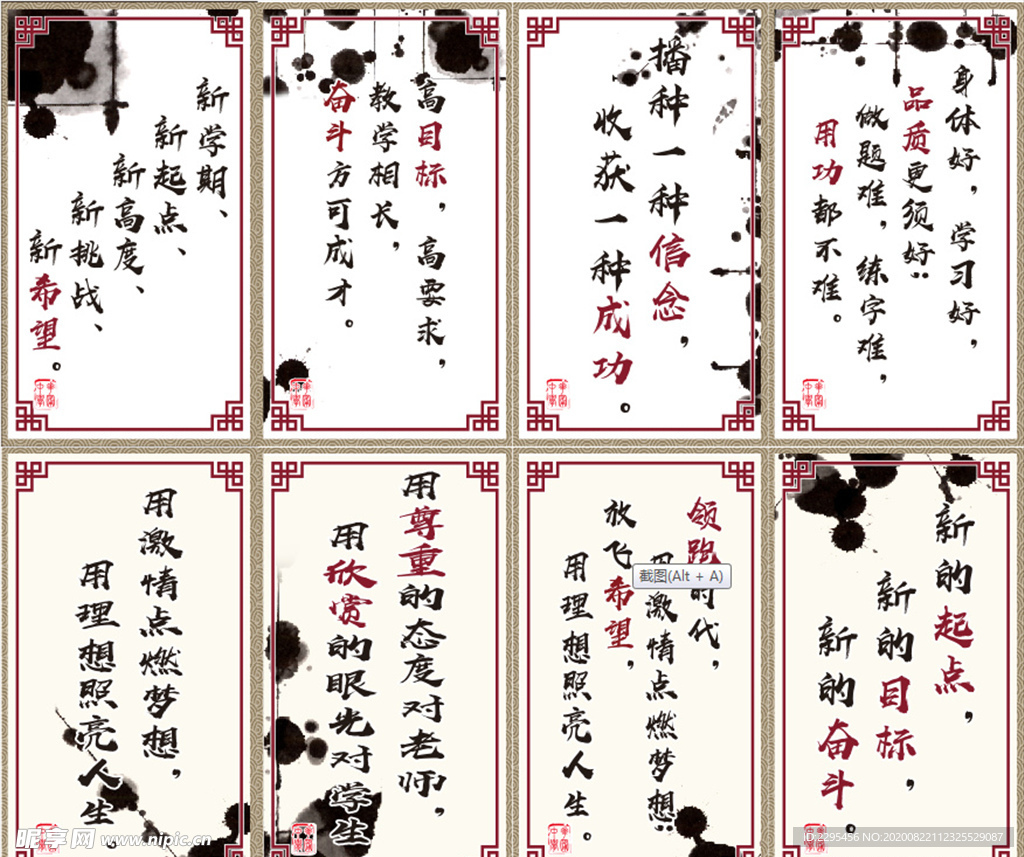 新学期、
新起点、
新高度、
新挑战、
新希望。
高目标，高要求，
教学相长，
奋斗方可成才。
播种一种信念，
收获一种成功。
身体好，学习好，
品质更须好；
做题难，练字难，
用功都不难。
用激情点燃梦想，
用理想照亮人生
用尊重的态度对老师，
用欣赏的眼光对学生
领跑时代，
放飞希望，
用激情点燃梦想；
用理想照亮人生。
新的起点，
新的目标，
新的奋斗。
截图(Alt + A)
昵享网 www.nipic.cn
ID:2295456 NO:20200822112325529087